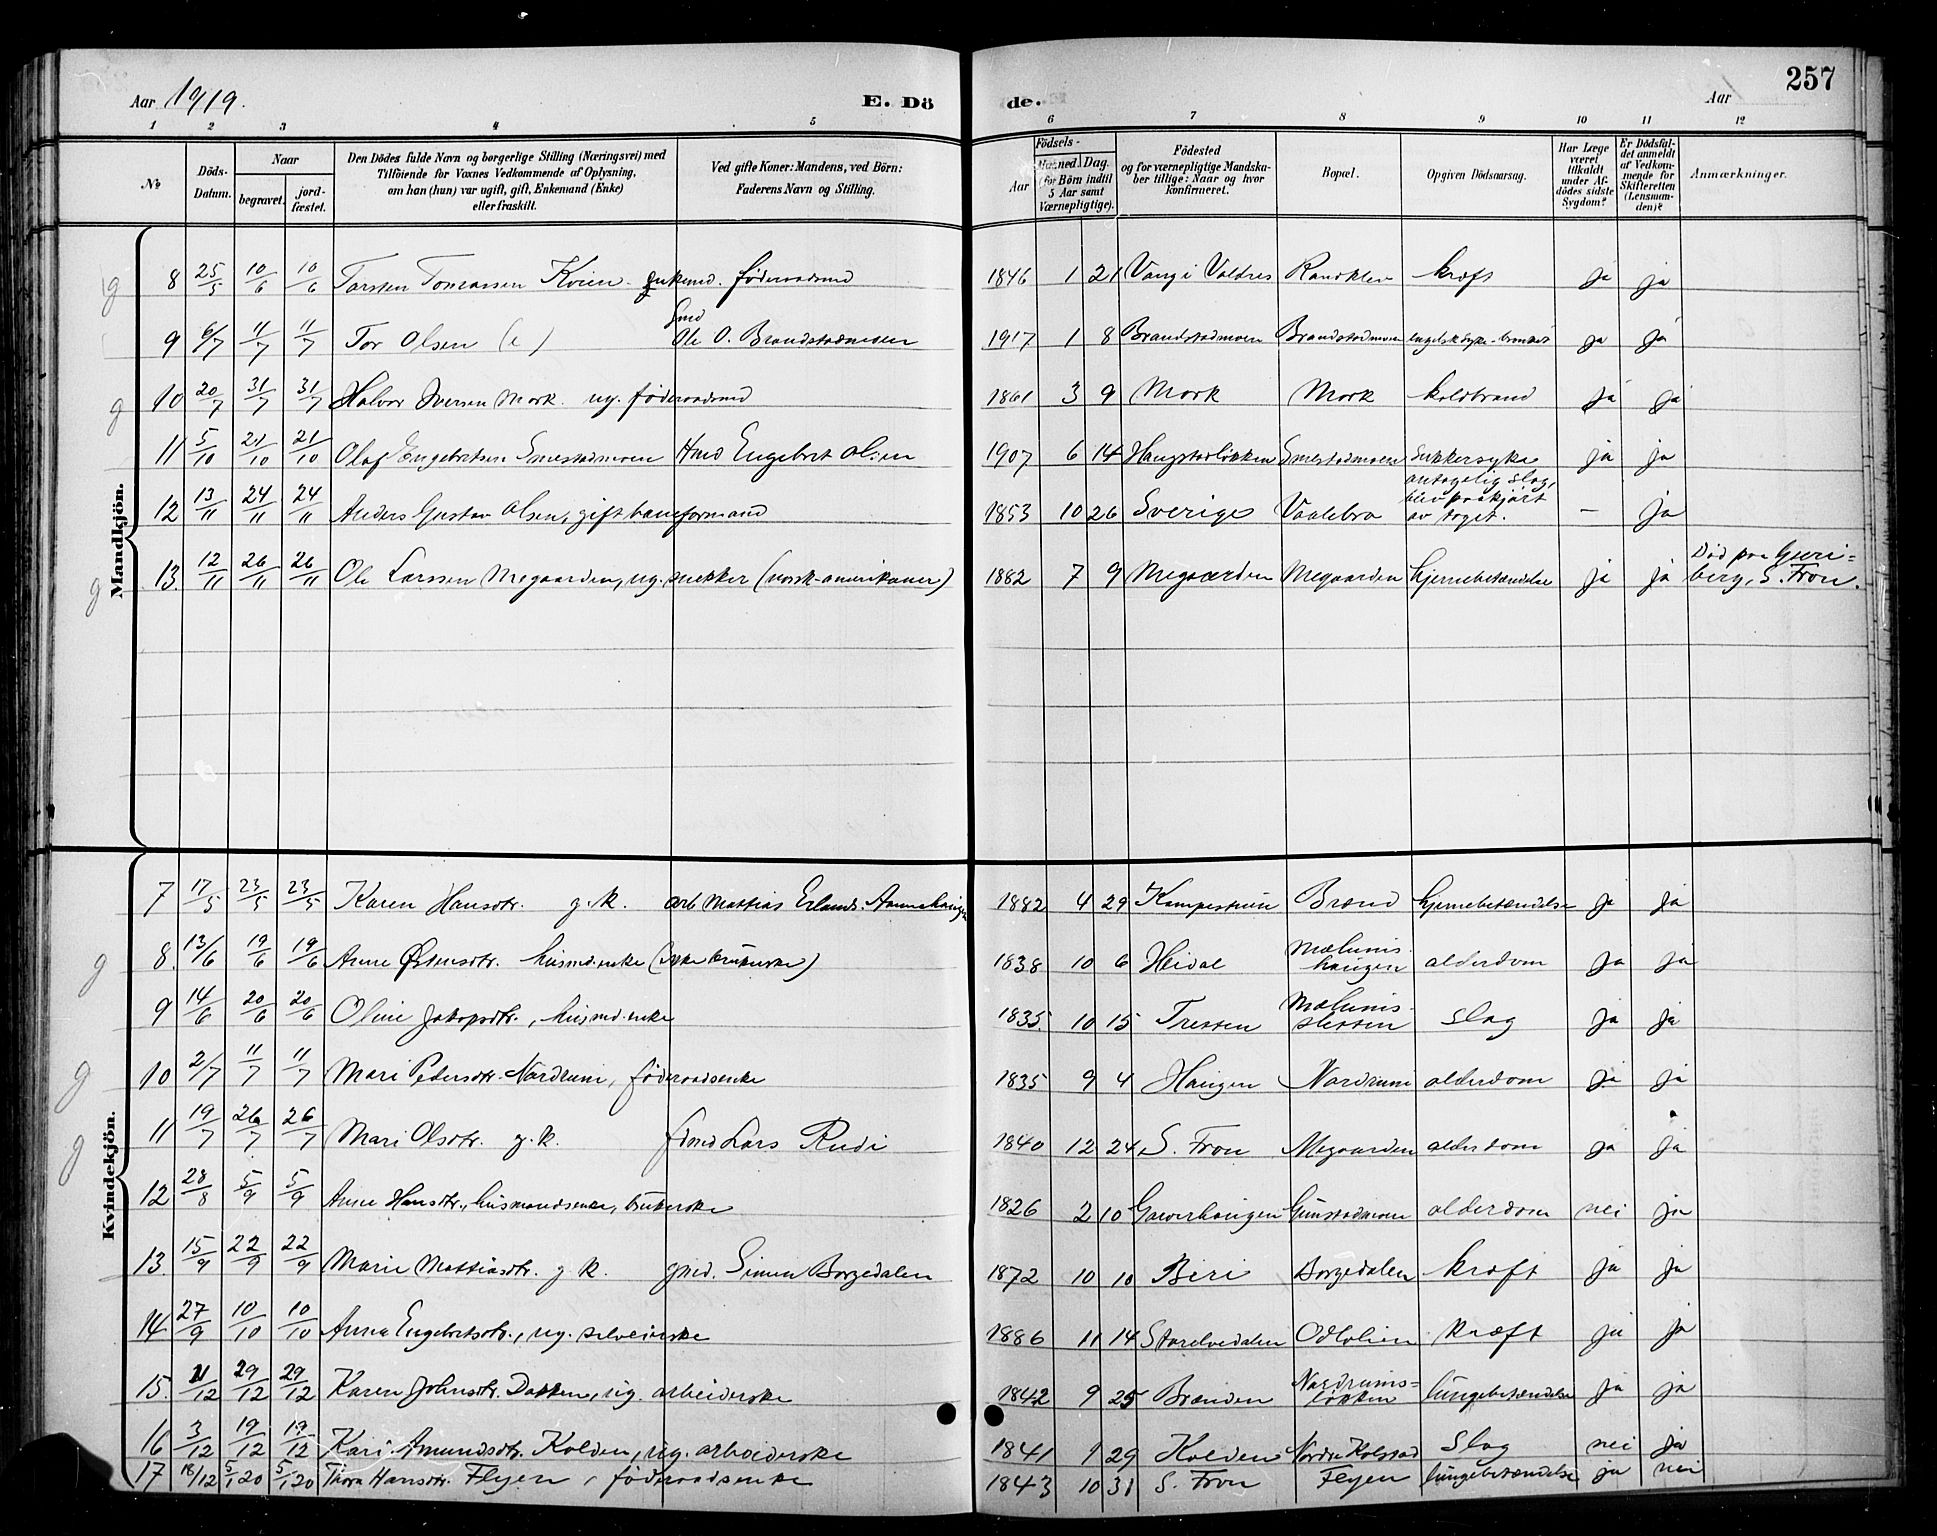 257
Aar 1919. E. Dö de. Aar
1 2 3 4 5 6 7 8 9 10 11 12
No Döds-Datum. Naar begravet. jord-fæstet. Den Dödes fulde Navn og borgerlige Stilling (Næringsvei) med Tilföiende for Voxnes Vedkommende af Oplysning, om han (hun) var ugift, gift, Enkemand (Enke) eller fraskilt. Ved gifte Koner: Mandens, ved Börn: Faderens Navn og Stilling. Födsels- Aar Maaned. Dag. (for Börn indtil 5 Aar samt Værnepligtige). Födested og for værnepligtige Mandskaber tillige: Naar og hvor konfirmeret. Bopæl. Opgiven Dödsaarsag. Har Læge været tilkaldt under Afdödes sidste Sygdom? Er Dödsfaldet anmeldt af Vedkommende for Skifteretten (Lensmanden)? Anmærkninger.
Mandkjön.
8 25/5 10/6 10/6 Torsten Tomassen Kvien. enkemd. föderaadsmd 1846 1 21 Vang i Valdres kræft ja ja
9 6/7 11/7 11/7 Tor Olsen (e) Gmd Ole O. Brandstadmoen 1917 1 8 Brandstadmoen Brandstadmoen engelsk syke - ja ja
10 20/7 31/7 31/7 Halvor Iversen Mork. ug. föderaadsmd 1861 3 9 Mork Mork koldbrand ja ja
11 5/10 21/10 21/10 Olaf Engebretsen Smestadmoen Hmd Engebret Olsen 1907 6 14 Haugstadløkken Smestadmoen Sukkersyke ja ja
12 13/11 24/11 24/11 Anders Gustav Olsen, gift baneformand 1853 10 26 Sverige Vaalebro antagelig slag, blev paakjørt av toget. — ja
13. 12/11 26/11 26/11 Ole Larssen Megaarden, ug. snekker (norsk-amerikaner) 1882 7 9 Megaarden Megaarden hjernebetændelse ja ja Död paa berg, S. Fron.
Kvindekjön.
7 17/5 23/5 23/5 Karen Hansdtr. g.k. arb Mattias Erlands. 1882 4 29 Brænd hjernebetændelse ja ja
8. 13/6 19/6 19/6 Anne Østensdtr. husmd.enke 1838 10 6 Heidal Mælumshaugen alderdom ja ja
9 14/6 20/6 20/6 Oline Jakopsdtr., husmd.enke 1835 10 15 Tretten Mælumssletten slag ja ja
10 2/7 11/7 11/7 Mari Pedersdtr. Nordrum, föderaadsenke 1835 9 4 Haugen Nordrum alderdom ja ja
11 19/7 26/7 26/7 Mari Olsdtr. g.k. fdmd Lars Rudi 1840 12 24 S. Fron Megaarden alderdom ja ja
12 28/8 5/9 5/9 Anne Hansdtr., husmandsenke, brukerske 1826 2 10 Garverhaugen Gunstadmoen alderdom nei ja
13. 15/9 22/9 22/9 Marie Mattiasdtr. g.k. gmd. Simen Borgedalen 1872 10 10 Biri Borgedalen kræft ja ja
14 27/9 10/10 10/10 Anna Engebretsdtr., ug. selveierske 1886 11 14 Storelvedalen Odlolien kræft ja ja
15. 21/12 29/12 29/12 Karen Johnsdtr. Dokken, ug. arbeiderske 1842 9 25 Brænden Nordrumsløkken lungebetændelse ja ja
16 3/12 19/12 19/12 Kari Amundsdtr. Kolden, ug. arbeiderske 1841 1 29 Kolden Nordre Kolstad Slag nei ja
17 18/12 5/1 20 5/1 20 Thora Hansdtr. Flyen, föderaadsenke 1843 10 31 S. Fron Flyen lungebetændelse ja nei